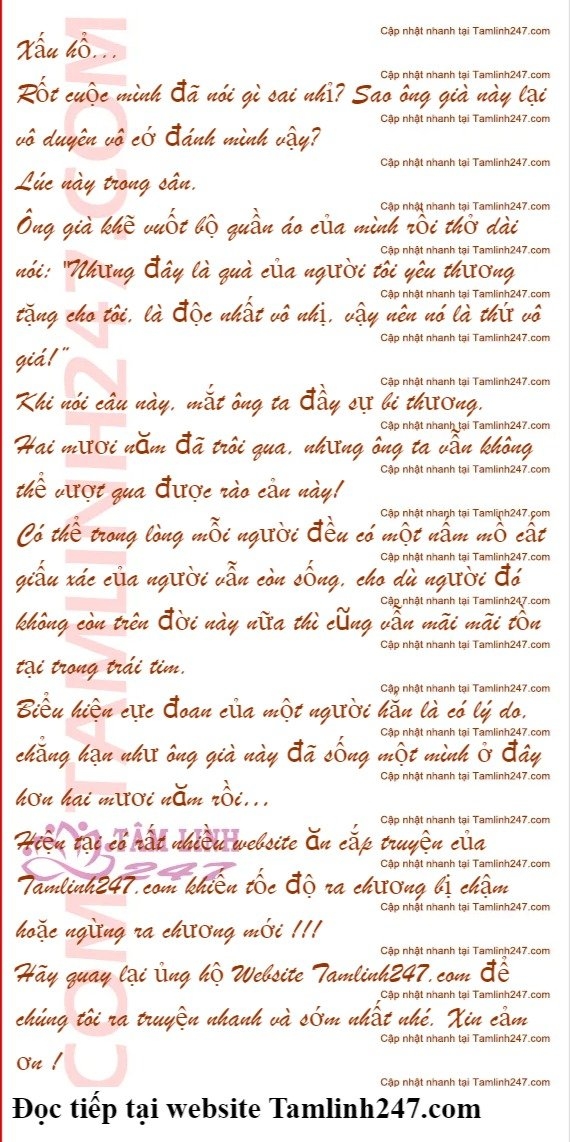 Cập nhật nhanh tại Tamlinh247.com
Xấu hổ...
Cập nhật nhanh tại Tamlinh247.com
Rốt cuộc mình đã nói gì sai nhỉ? Sao ông già này lại
Cập nhật nhanh tại Tamlinh247.com
vô duyên vô cớ đánh mình vậy?
Cập nhật nhanh tại Tamlinh247.com
Lúc này trong sân,
Cập nhật nhanh tại Tamlinh247.com
Ông già khẽ vuốt bộ quần áo của mình rồi thở dài
Cập nhật nhanh tại Tamlinh247.com
nói: "Nhưng đây là quà của người tôi yêu thương
Cập nhật nhanh tại Tamlinh247.com
tặng cho tôi, là độc nhất vô nhị, vậy nên nó là thứ vô
Cập nhật nhanh tại Tamlinh247.com
giá!"
Cập nhật nhanh tại Tamlinh247.com
Khi nói câu này, mắt ông ta đầy sự bi thương,
Cập nhật nhanh tại Tamlinh247.com
Hai mươi năm đã trôi qua, nhưng ông ta vẫn không
Cập nhật nhanh tại Tamlinh247.com
thể vượt qua được rào cản này!
Cập nhật nhanh tại Tamlinh247.com
Có thể trong lòng mỗi người đều có một nấm mồ cất
Cập nhật nhanh tại Tamlinh247.com
giấu xác của người vẫn còn sống, cho dù người đó
Cập nhật nhanh tại Tamlinh247.com
không còn trên đời này nữa thì cũng vẫn mãi mãi tồn
Cập nhật nhanh tại Tamlinh247.com
tại trong trái tim.
Cập nhật nhanh tại Tamlinh247.com
Biểu hiện cực đoan của một người hẳn là có lý do,
Cập nhật nhanh tại Tamlinh247.com
chẳng hạn như ông già này đã sống một mình ở đây
Cập nhật nhanh tại Tamlinh247.com
hơn hai mươi năm rồi...
Cập nhật nhanh tại Tamlinh247.com
Hiện tại có rất nhiều website ăn cắp truyện của
TÂM LINH
247
Cập nhật nhanh tại Tamlinh247.com
Tamlinh247.com khiến tốc độ ra chương bị chậm
Cập nhật nhanh tại Tamlinh247.com
hoặc ngừng ra chương mới !!!
Cập nhật nhanh tại Tamlinh247.com
Hãy quay lại ủng hộ Website Tamlinh247.com để
Cập nhật nhanh tại Tamlinh247.com
chúng tôi ra truyện nhanh và sớm nhất nhé. Xin cảm
Cập nhật nhanh tại Tamlinh247.com
ơn !
Cập nhật nhanh tại Tamlinh247.com
COM TAMLINH247.COM
Đọc tiếp tại website Tamlinh247.com